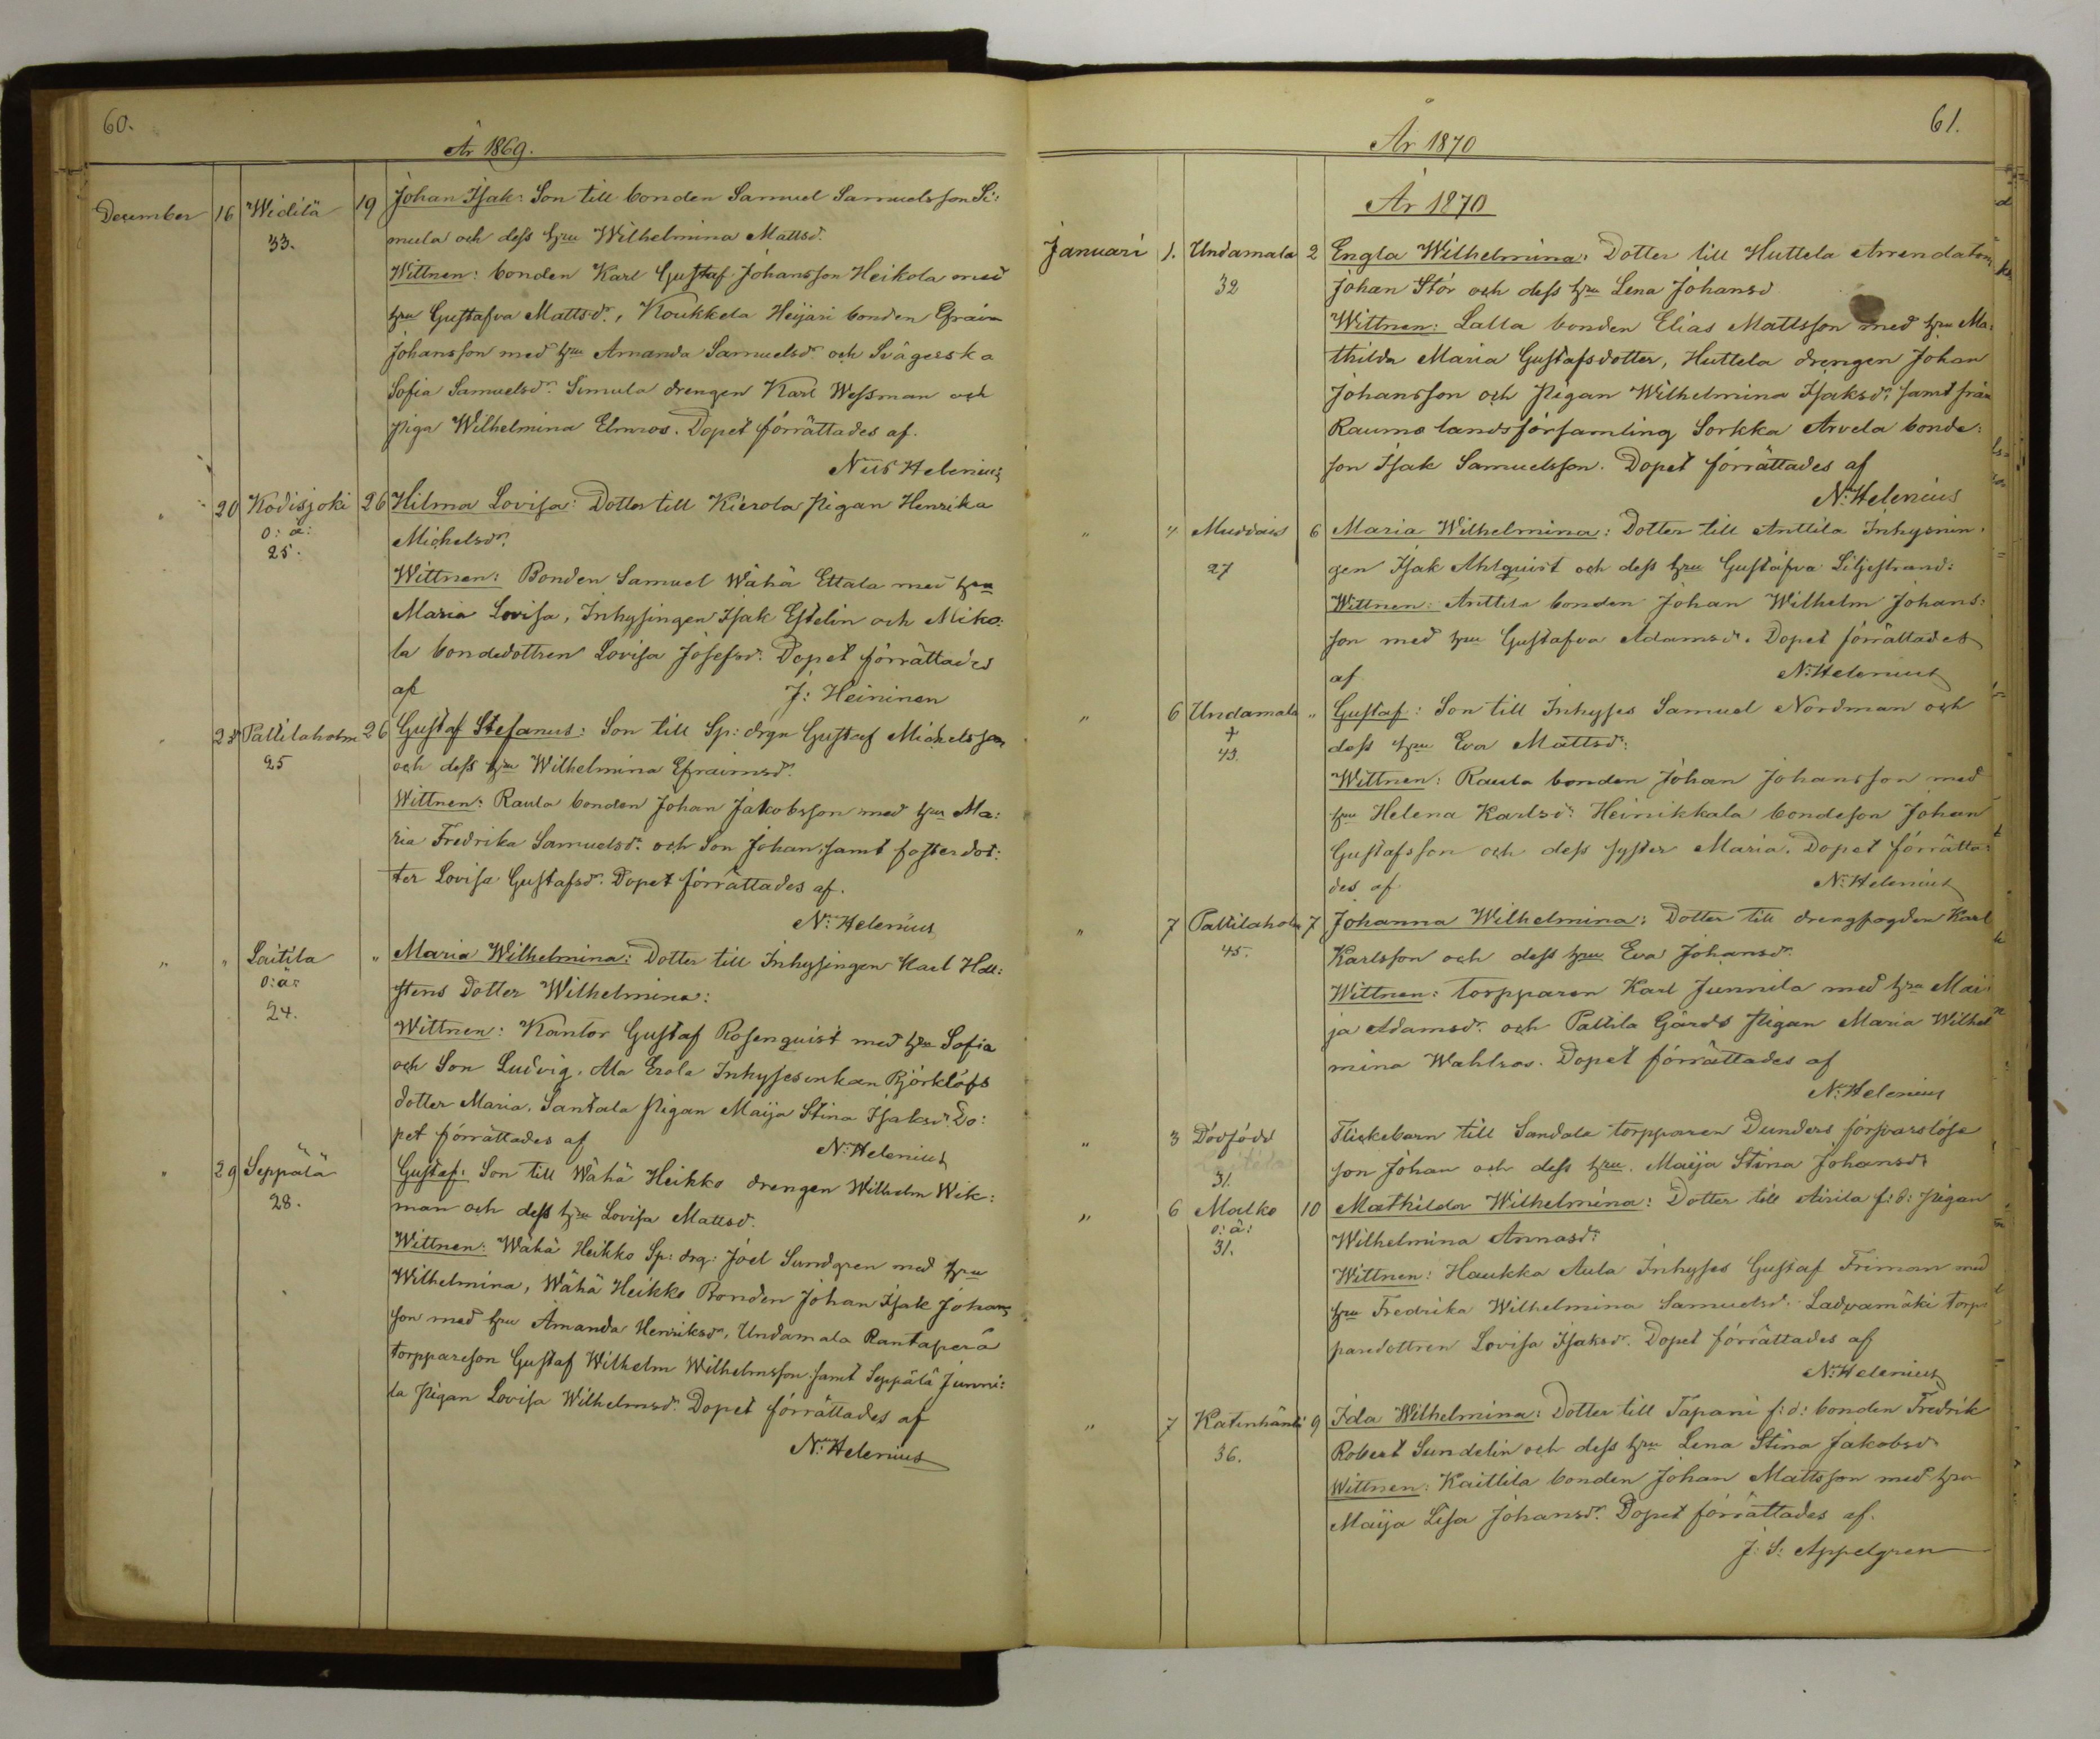 60.
År 1869.
December 16 Widilä 19 Johan Isak: Son till bonden Samuel Samuelsson Si:
33. mula och dess hru Wilhelmina Mattsdr.
Wittnen: bonden Karl Gustaf Johansson Heikola med
hru Gustafva Mattsdr., Koukkela Heijari bonden Efraim
Johansson med hru Amanda Samuelsdr. och Svägerska
Sofia Samuelsdr. Simula drengen Karl Wessman och
Piga Wilhelmina Elmros. Dopet förrättades af.
Nils Helenius
" 20 Kodisjoki 26 Hilma Lovisa: Dotter till Kierola Pigan Henrika
o: ä: Michelsdr.
25.
Wittnen: Bonden Samuel Wähä Ettala med hru
Maria Lovisa, Inhysingen Isak Estelin och Miko:
la bondedottren Lovisa Josefsdr. Dopet förrättades
af J: Heininen
" 25 Palttilaholm 26 Gustaf Stefanus: Son till Sp: drgn Gustaf Michelsson
25 och dess hru Wilhelmina Efraimsdr.
Wittnen: Raula bonden Johan Jakobsson med hru Ma:
ria Fredrika Samuelsdr. och Son Johan, samt fosterdot:
ter Lovisa Gustafsdr. Dopet förrättades af.
N: Helenius
" " Laitila " Maria Wilhelmina: Dotter till Inhysingen Karl Hall:
o: ä: stens Dotter Wilhelmina:
24.
Wittnen: Kantor Gustaf Rosenquist med hru Sofia
och Son Ludvig. Ala Erola Inhysesenkan Björklöfs
dotter Maria. Santala Pigan Maija Stina Isaksdr. Do:
pet förrättades af N: Helenius
" 29 Seppälä Gustaf: Son till Wähä Heikko drengen Wilhelm Wik:
28. man och dess hru Lovisa Mattsdr.
Wittnen: Wähä Heikko Sp: drg: Joel Sundgren med hru
Wilhelmina, Wähä Heikko Bonden Johan Isak Johans
son med hru Amanda Henriksdr. Undamala Rantaperä
torppareson Gustaf Wilhelm Wilhelmsson samt Seppälä Junni:
la Pigan Lovisa Wilhelmsdr. Dopet förrättades af
N: Helenius
61.
År 1870
År 1870
Januari 1. Undamala 2 Engla Wilhelmina: Dotter till Huttela Arrendatorn
32 Johan Stör och dess hru Lena Johansd
Wittnen: Lalla bonden Elias Mattsson med hru Ma:
thilda Maria Gustafsdotter, Huttela drengen Johan
Johansson och Pigan Wilhelmina Isaksdr. samt från
Raumo landsförsamling Sorkka Arvela bonde:
son Isak Samuelsson. Dopet förrättades af
N: Helenius
" 4 Muddais 6 Maria Wilhelmina: Dotter till Anttila Inhysnin:
27 gen Isak Ahlquist och dess hru Gustafva Liljestrand:
Wittnen: Anttila bonden Johan Wilhelm Johans:
son med hru Gustafva Adamsdr. Dopet förrättades
af N: Helenius
" 6 Undamala " Gustaf: Son till Inhyses Samuel Nordman och
+ dess hru Eva Mattsdr:
43.
Wittnen: Raula bonden Johan Johansson med
hru Helena Karlsdr: Heinikkala bondeson Johan
Gustafsson och dess syster Maria. Dopet förrätta:
des af. N: Helenius
" 7 Palttilaholm 7 Johanna Wilhelmina: Dotter till drengfogden Karl
45. Karlsson och dess hru Eva Johansdr.
Wittnen: torpparen Karl Junnila med hru Mai:
ja Adamsdr. och Palttila Gårds Pigan Maria Wilhel
mina Wahlros. Dopet förrättades af
N: Helenius
" 3 Dödfödd Flickebarn till Sandala torpparen Dunders försvarslöse
Lajtila
31. son Johan och dess hru. Maija Stina Johansdr
" 6 Malko 10 Mathilda Wilhelmina: Dotter till Airila f: d: Pigan
o: ä: Wilhelmina Annasdr:
31.
Wittnen: Haukka Aula Inhyses Gustaf Friman med
hru Fredrika Wilhelmina Samuelsdr. Ladvamäki torp:
paredottren Lovisa Isaksdr. Dopet förrättades af
N: Helenius
" 7 Katinhäntä 9 Ida Wilhelmina: Dotter till Tapani f: d: bonden Fredrik
36. Robert Sundelin och dess hru Lena Stina Jakobsdr
Wittnen: Kaittila bonden Johan Mattsson med hru
Maija Lisa Johansdr. Dopet förrättades af.
J: S: Appelgren